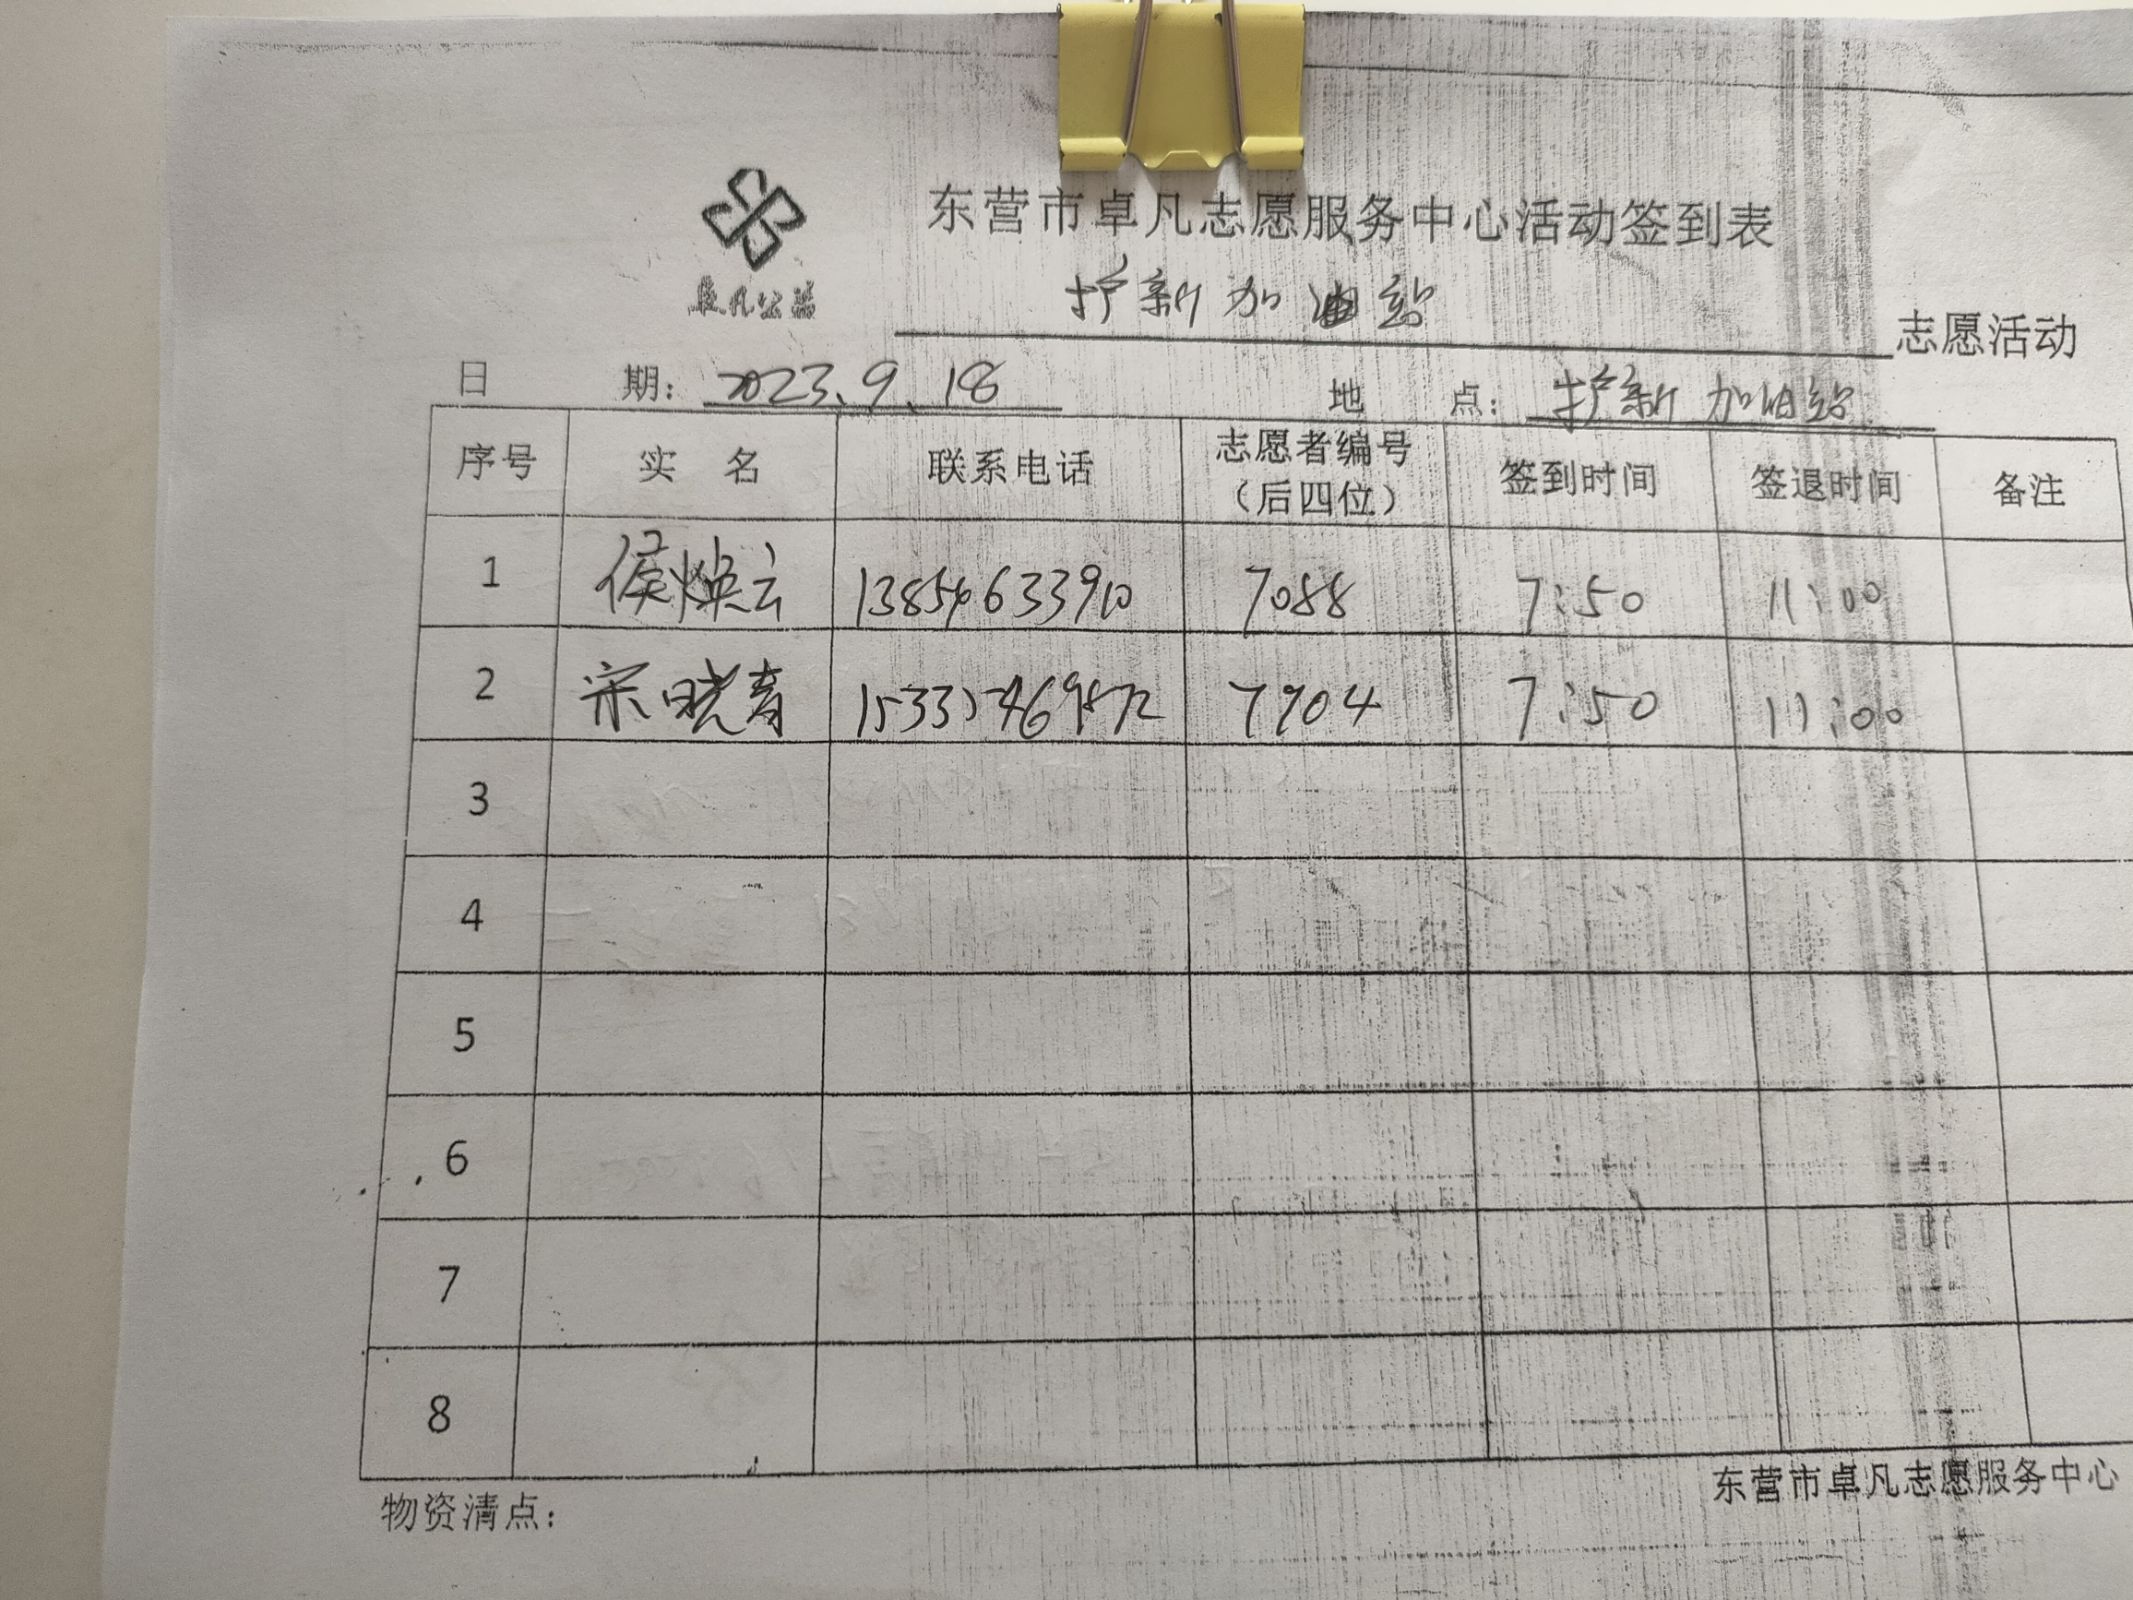 东营市卓凡志愿服务中心活动签到表
卓凡公益
护新加油站 志愿活动
日 期：2023、9、18 地 点：护新加油站
序号 实 名 联系电话 志愿者编号（后四位） 签到时间 签退时间 备注
1 侯焕云 13854633910 7088 7:50 11:00
2 宋晓青 7904 7:50 11:00
3
4
5
6
7
8
东营市卓凡志愿服务中心
物资清点：